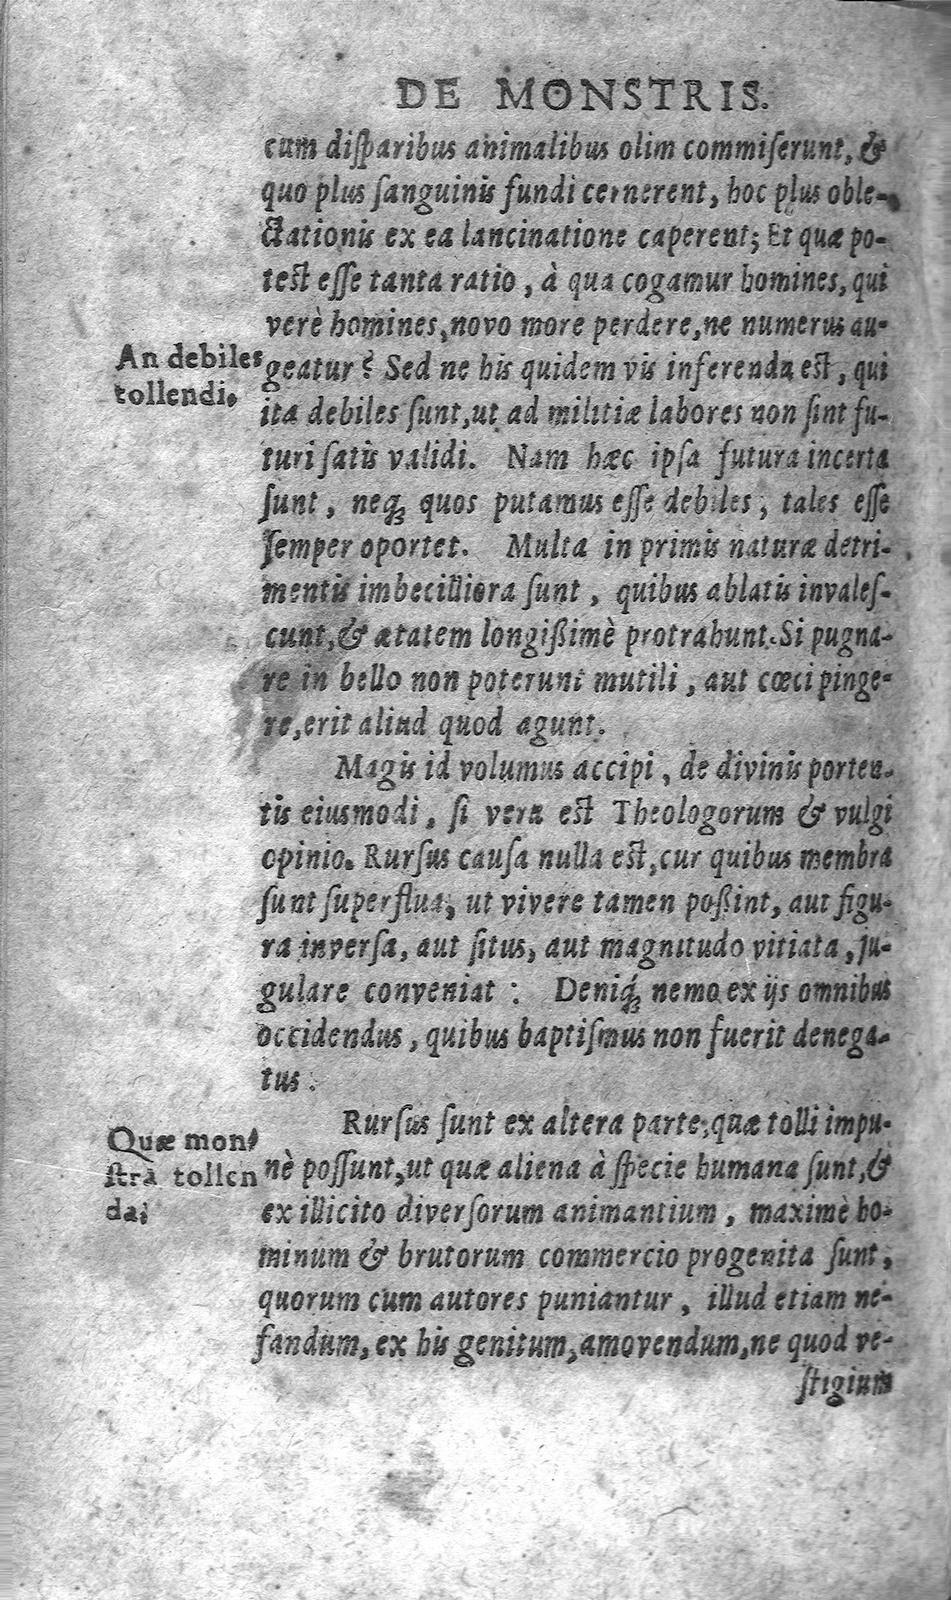 DE MONSTRIS.
cum diſparibus animalibus olim commiſerunt, &
quo plus ſanguinis fundi cernerent, hoc plus oble-
ctationis ex ea lancinatione caperent; Et quæ po-
test eſſe tanta ratio, à qua cogamur homines, qui
verè homines, novo more perdere, ne numerus au-
An debiles
tollendi.
geatur? Sed ne his quidem vis inferenda est, qui
ita debiles ſunt, ut ad militiæ labores non ſint fu-
turi ſatis validi. Nam hæc ipſa futura incerta
ſunt, neq; quos putamus eſſe debiles, tales eſſe
ſemper oportet. Multa in primis naturæ detri-
mentis imbecilliora ſunt, quibus ablatis invaleſ-
cunt, & ætatem longißimè protrahunt. Si pugna-
re in bello non poterunt mutili, aut cœci pinge-
re, erit aliud quod agunt.
Magis id volumus accipi, de divinis porten-
tis eiusmodi, ſi vera est Theologorum & vulgi
opinio. Rurſus cauſa nulla est, cur quibus membra
ſunt ſuperflua, ut vivere tamen poßint, aut figu-
ra inverſa, aut ſitus, aut magnitudo vitiata, ju-
gulare conveniat: Deniq́; nemo ex ijs omnibus
occidendus, quibus baptiſmus non fuerit denega-
tus.
Quæ mon-
ſtra tollen
da;
Rurſus ſunt ex altera parte, quæ tolli impu-
nè poſſunt, ut quæ aliena à ſpecie humana ſunt, &
ex illicito diverſorum animantium, maximè ho-
minum & brutorum commercio progenita ſunt,
quorum cum autores puniantur, illud etiam ne-
fandum, ex his genitum, amovendum, ne quod ve-
ſtigium